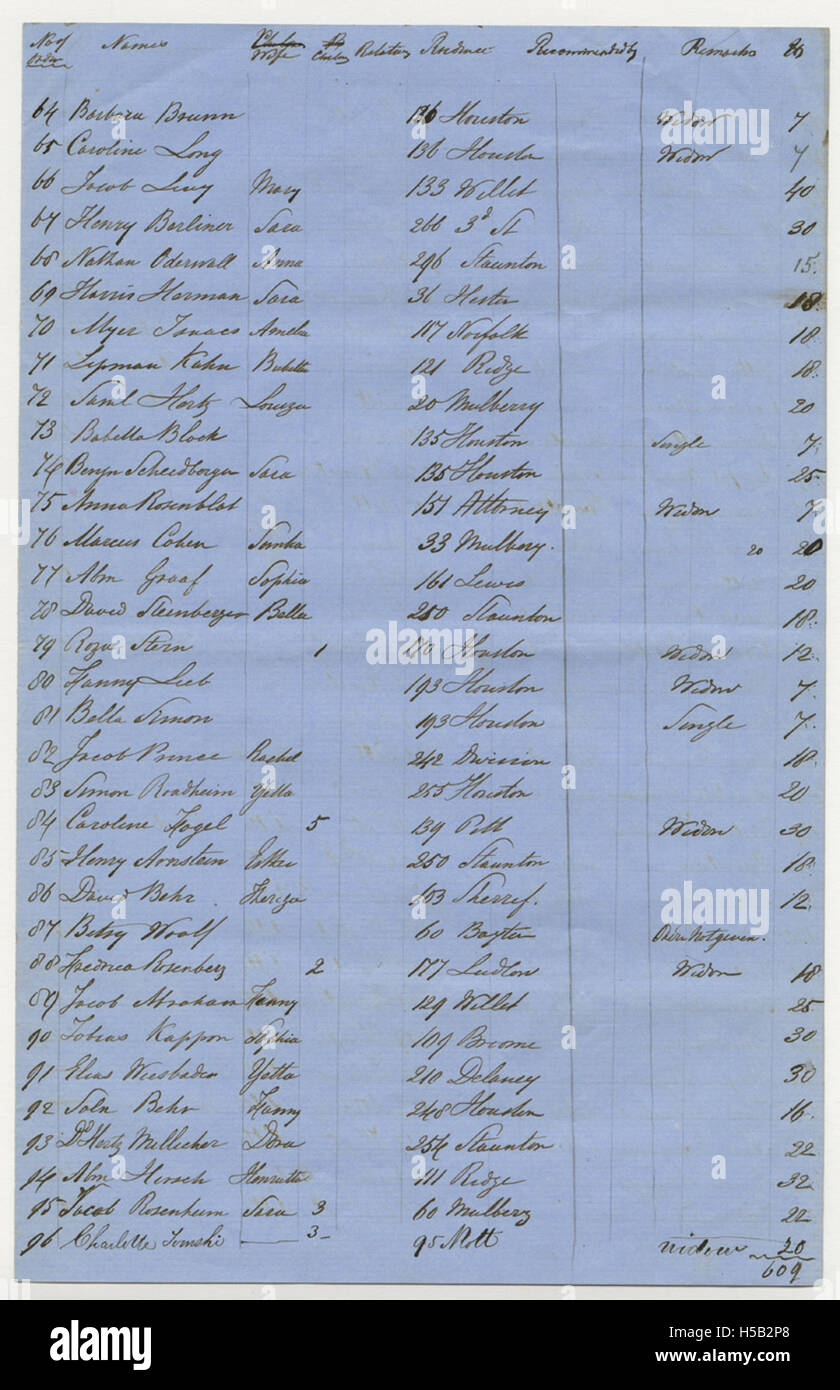 No of order Names Wife Children Relatives Residence Recommended by Remarks lb
64 Barbara Brunn 136 Houston Widow 7
65 Caroline Long 136 Houston Widow 7
66 Jacob Levy Mary 133 Willet 40
67 Henry Berliner Sara 266 3d St 30
68 Nathan Oderwall Anna 296 Staunton 15
69 Harris Herman Sara 36 Hester 18
70 Myer Isaacs Amelia 117 Norfolk 18
71 Lipman Kahn Babetta 121 Ridge 18
72 Saml Hertz Louiza 20 Mulberry 20
73 Babella Block 135 Houston Single 7
74 Benjn Scheedberger Sara 135 Houston 25
75 Anna Rosenblat 151 Attorney Widow 7
76 Marcus Cohen 33 Mulbery. 20 20
77 Abm Graaf Sophia 161 Lewis 20
78 David Steinberger Bella 250 Staunton 18
79 Rosa Stern 1 170 Houston Widow 12
80 Fanny Lieb 193 Houston Widow 7
81 Bella Simon 193 Houston Single 7
82 Jacob Prince Rachel 242 Division 18
83 Simon Roadheim Yetta 255 Houston 20
84 Caroline Fogel 5 139 Pitt Widow 30
85 Henry Arnstein Esther 250 Staunton 18
86 David Behr Thereza 103 Sherref. 12
87 Betsy Woolf 60 Baxter Order Not given.
88 Fredrica Rosenberg 2 177 Ludlow Widow 18
89 Jacob Abraham Fanny 129 Willet 25
90 Tobias Kappon Sophia 109 Broome 30
91 Elias Wiesbaden Yetta 210 Delancy 30
92 Soln Behr Fanny 248 Houston 16
93 Dd Hertz Mellicher Dora 254 Staunton 22
94 Abm Hirsch Henrietta 111 Ridge 32
95 Jacob Rosenheim Sara 3 60 Mulbery 22
96 Charlotte Tomski 3 95 Mott widow 20
609
alamy stock photo
alamy
alamy
Image ID: H5B2P8
www.alamy.com